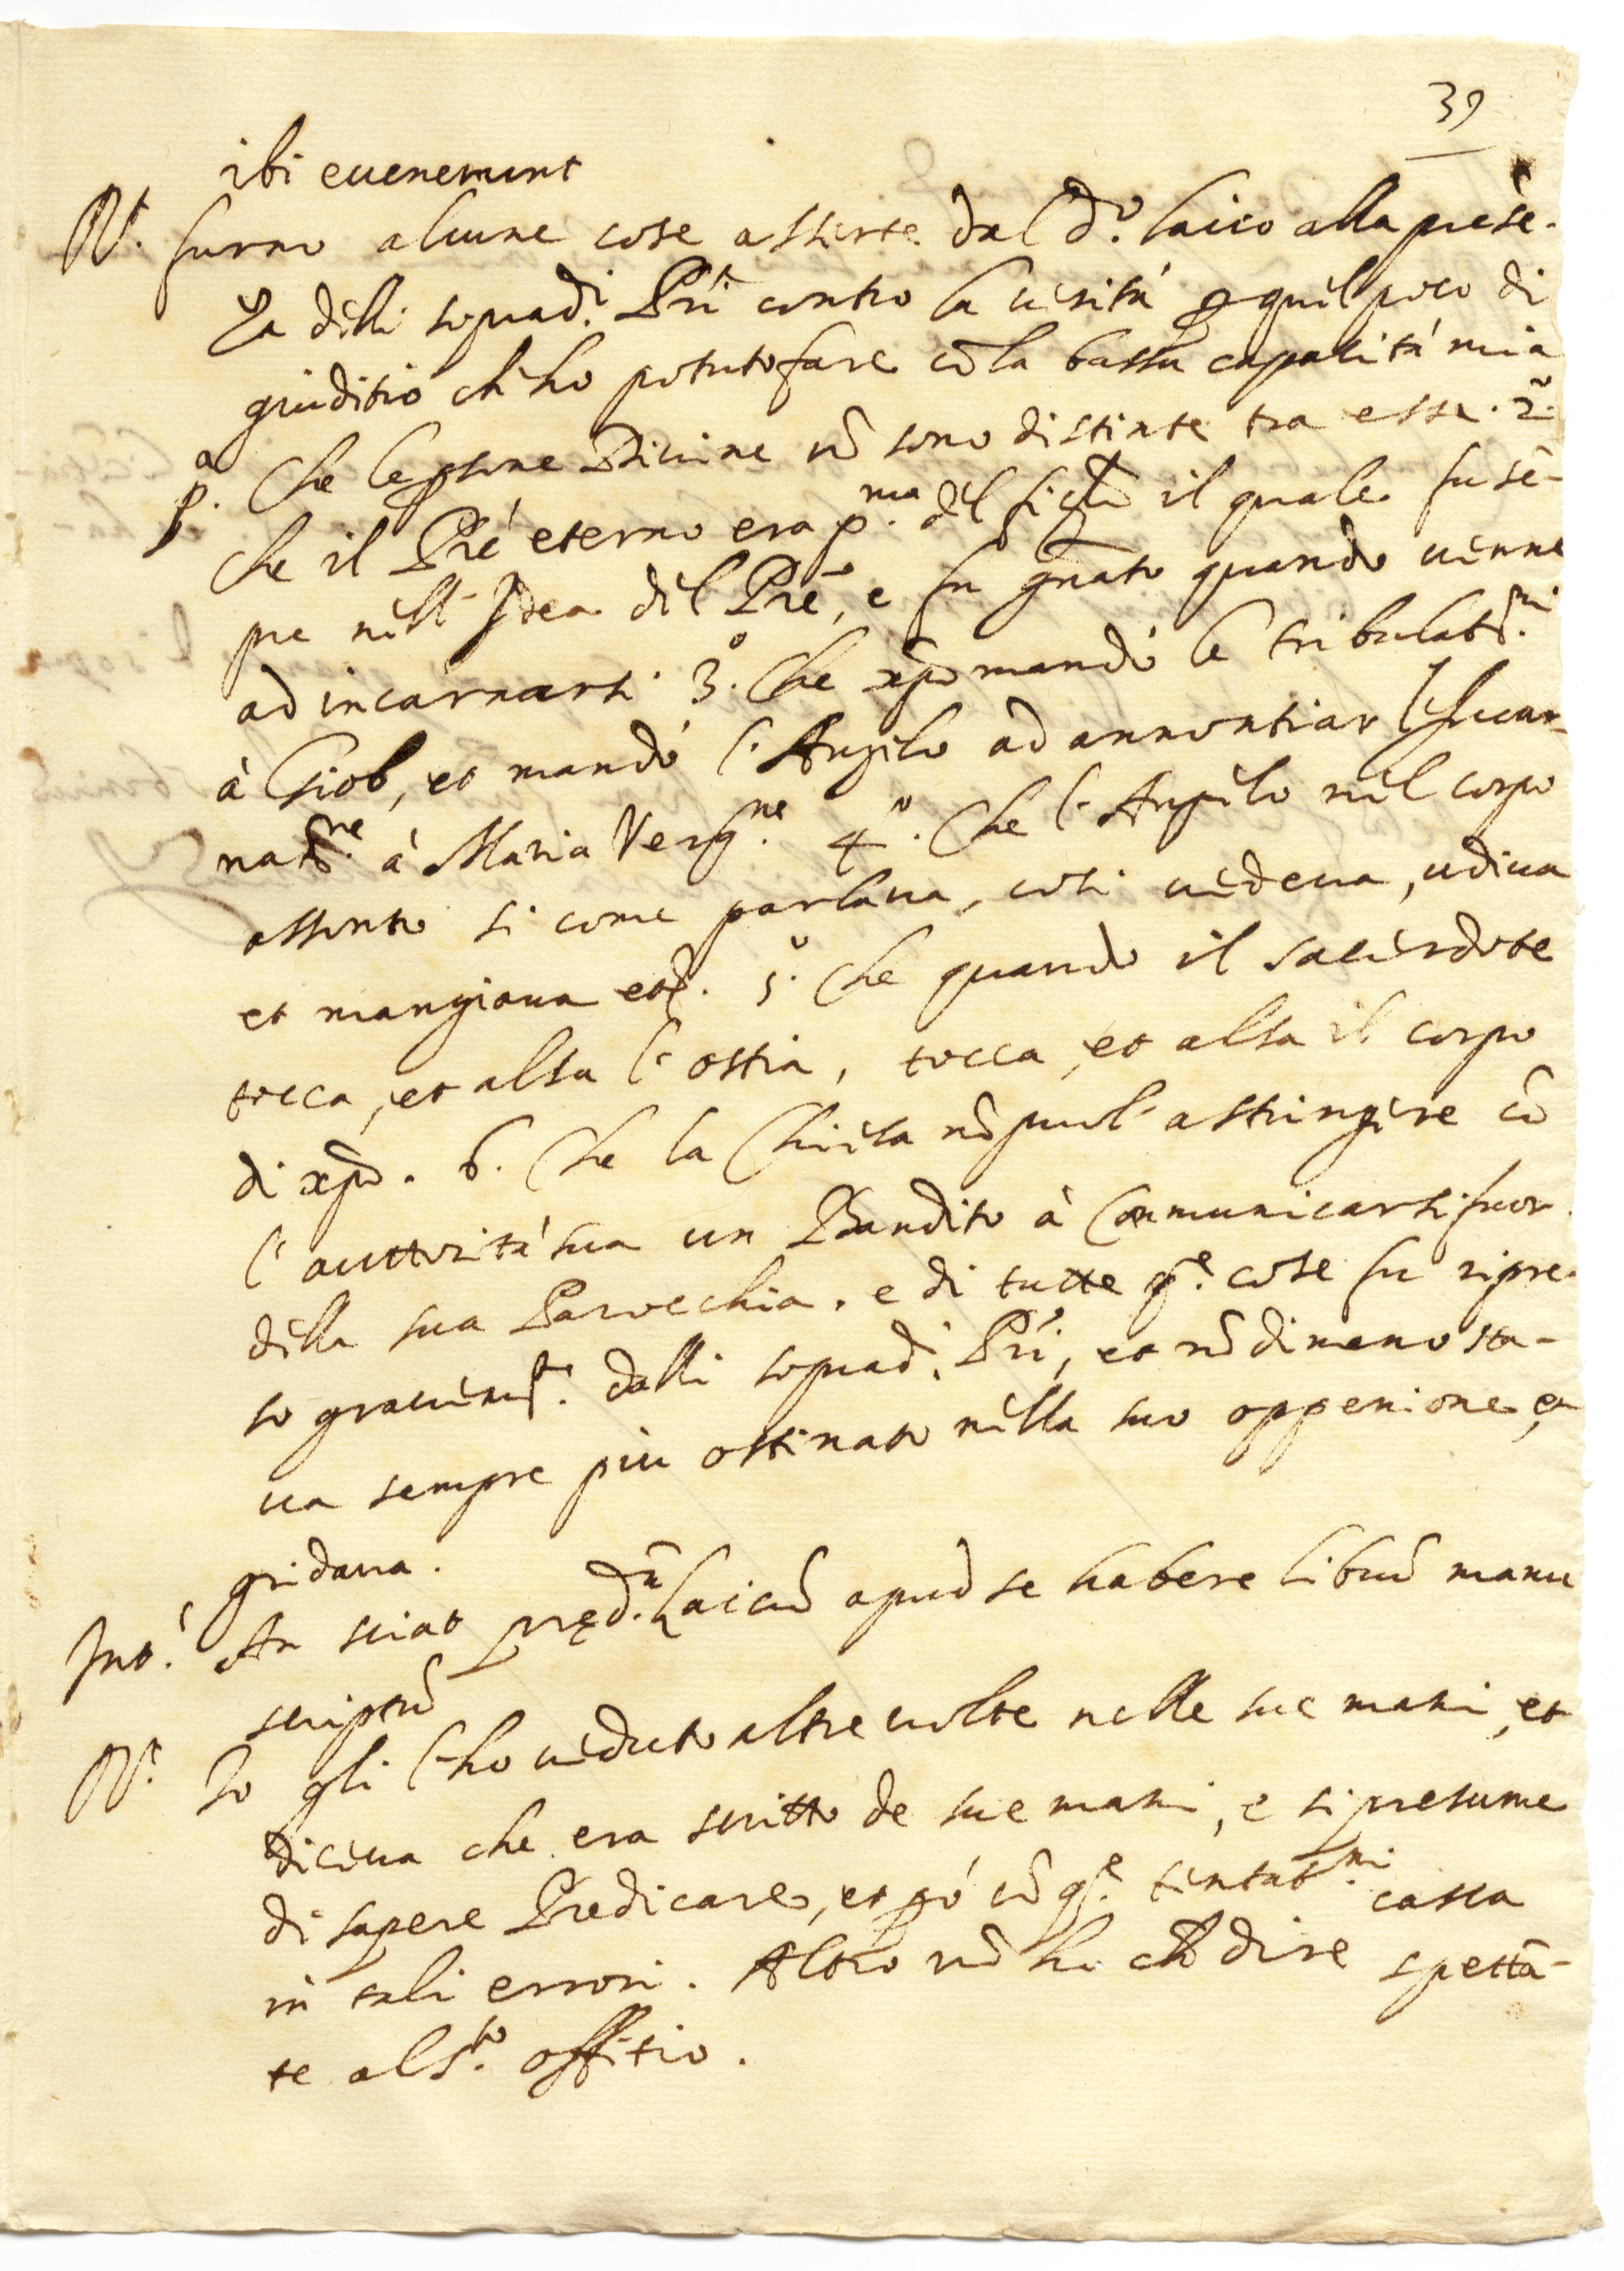 39
ibi evenerunt
Rt. furno alcune cose asserte dal do. laico alla presē-
za delli sopradi. Pri contro la verità ꝑ quel poco di
giuditio ch'ho potuto fare cō la bassa capacità mia
pa. Che le ꝑsone Divine nō sono distinte tra esse. 2o.
che il Prē eterno era pma. del figlio il quale fu sē-
pre nell'Idea del Prē, e fu gnato quando venne
ad incarnarsi 3o. Che xpo mandò le tribulatni.
à Giob, et mandò l'Angelo ad annontiar l'Incar-
natne. à Maria Vergne. 4o. Che l'Angelo nel corpo
assonto si come parlava, così vedeva, udiva
et mangiava etc. 5o. Che quando il sacerdote
tocca, et alsa l'ostia, tocca, et alsa il corpo
di xpo. 6. Che la Chiesa nō puol' astringere cō
l'auttorità sua un Bandito à Communicarsi fuor
della sua Parocchia. e di tutte qe. cose fu ripre-
so gravemte. dalli soprad. Pri, et nōdimeno sta-
va sempre più ostinato nella suo oppenione, e
gridava.
Int. An sciat prędm. laicū apud se habere librū manu
scriptū
Rt. Io gli l'ho veduto altre volte nelle sue mani, et
diceva che era scritto de sue mani, e si presume
di sapere Predicare, et ꝑò cō qste. tentatni. casca
in tali errori. Altro nō ho che dire spettā-
te al Sto. offitio.